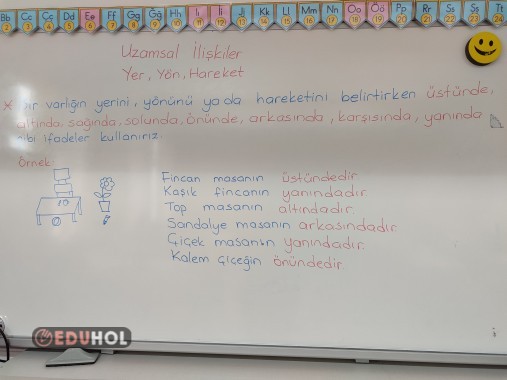 Bb Cc Çç Dd Ee Ff Gg Ğğ Hh Iı İi Jj Kk Ll Mm Nn Oo Öö Pp Rr Ss Şş Tt
2 3 4 5 6 7 8 9 10 11 12 13 14 15 16 17 18 19 20 21 22 23 24
Uzamsal İlişkiler
Yer, Yön, Hareket
Bir varlığın yerini, yönünü ya da hareketini belirtirken üstünde,
altında, sağında, solunda, önünde, arkasında, karşısında, yanında
gibi ifadeler kullanırız.
Örnek:
Fincan masanın üstündedir.
Kaşık fincanın yanındadır.
Top masanın altındadır.
Sandalye masanın arkasındadır.
Çiçek masanın yanındadır.
Kalem çiçeğin önündedir.
EDUHOL